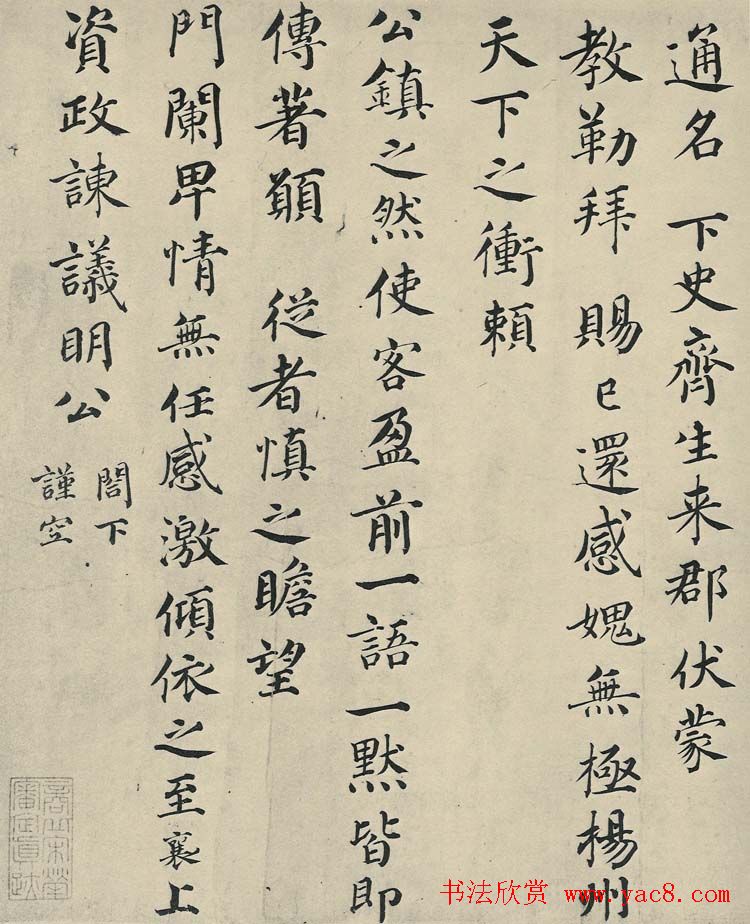 通名 下史齊生来郡伏蒙
教勒拜 賜已還感媿無極楊州
天下之衝頼
公鎮之然使客盈前一語一默皆即
傳著願 從者慎之瞻望
門闌畀情無任感激傾依之至襄上
資政諫議明公
閤下
謹空
书法欣赏 www.yac8.com